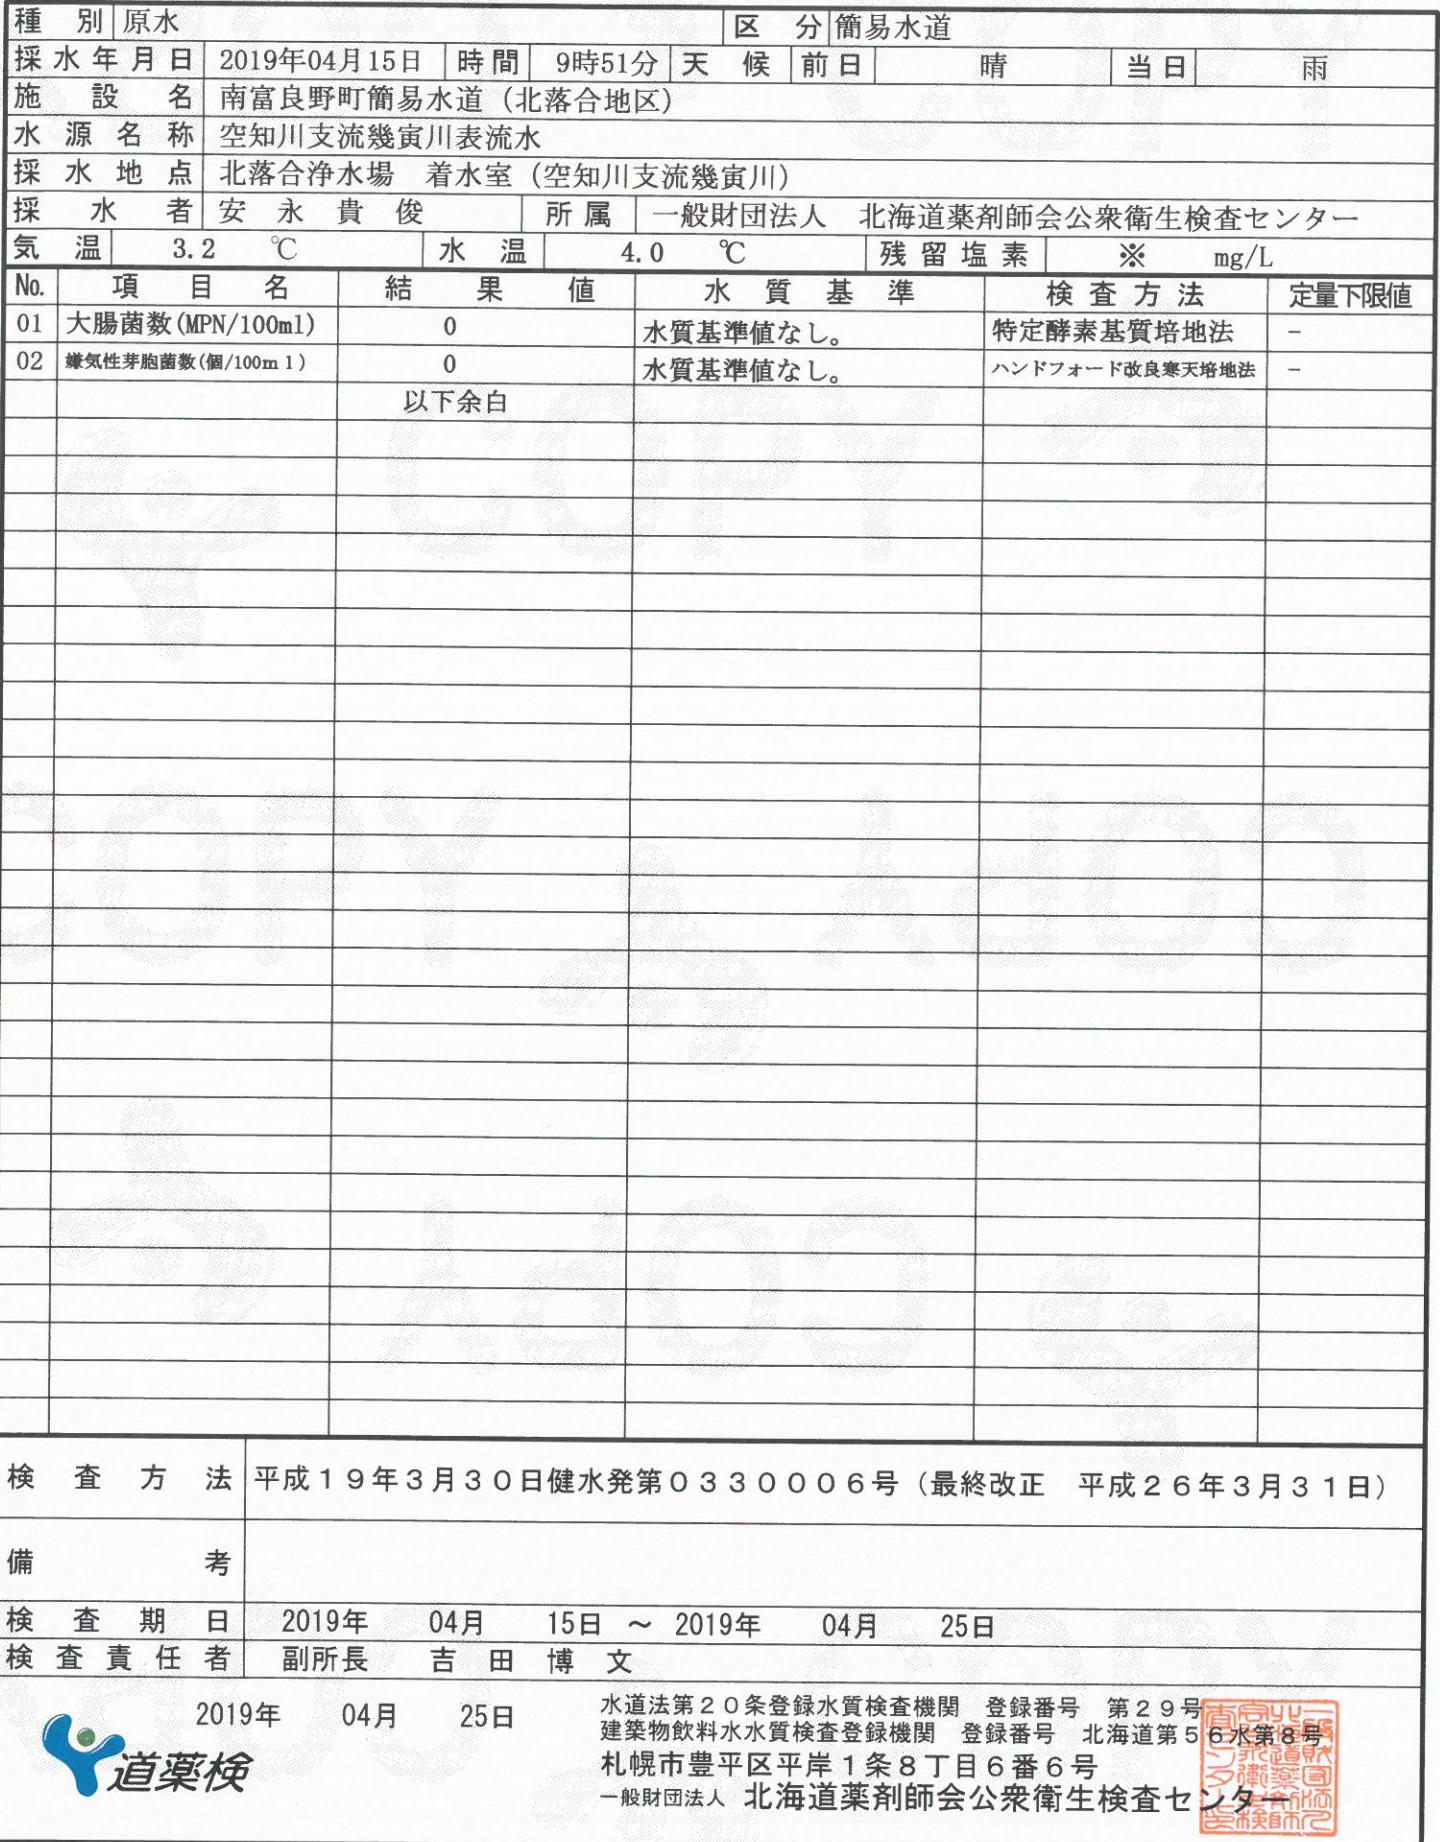 種別 原水 区分 簡易水道
採水年月日 2019年04月15日 時間 9時51分 天候 前日 晴 当日 雨
施設名 南富良野町簡易水道（北落合地区）
水源名称 空知川支流幾寅川表流水
採水地点 北落合浄水場 着水室（空知川支流幾寅川）
採水者 安永貴俊 所属 一般財団法人 北海道薬剤師会公衆衛生検査センター
気温 3.2 ℃ 水温 4.0 ℃ 残留塩素 ※ mg/L
No. 項目名 結果値 水質基準 検査方法 定量下限値
01 大腸菌数(MPN/100ml) 0 水質基準値なし。 特定酵素基質培地法 −
02 嫌気性芽胞菌数(個/100ml) 0 水質基準値なし。 ハンドフォード改良寒天培地法 −
以下余白
COPY
COPY
COPY
COPY
検査方法 平成19年3月30日健水発第0330006号（最終改正 平成26年3月31日）
備考
検査期日 2019年 04月 15日 ～ 2019年 04月 25日
検査責任者 副所長 吉田博文
2019年 04月 25日
水道法第20条登録水質検査機関 登録番号 第29号
建築物飲料水水質検査登録機関 登録番号 北海道第56水第8号
札幌市豊平区平岸1条8丁目6番6号
一般財団法人 北海道薬剤師会公衆衛生検査センター
道薬検